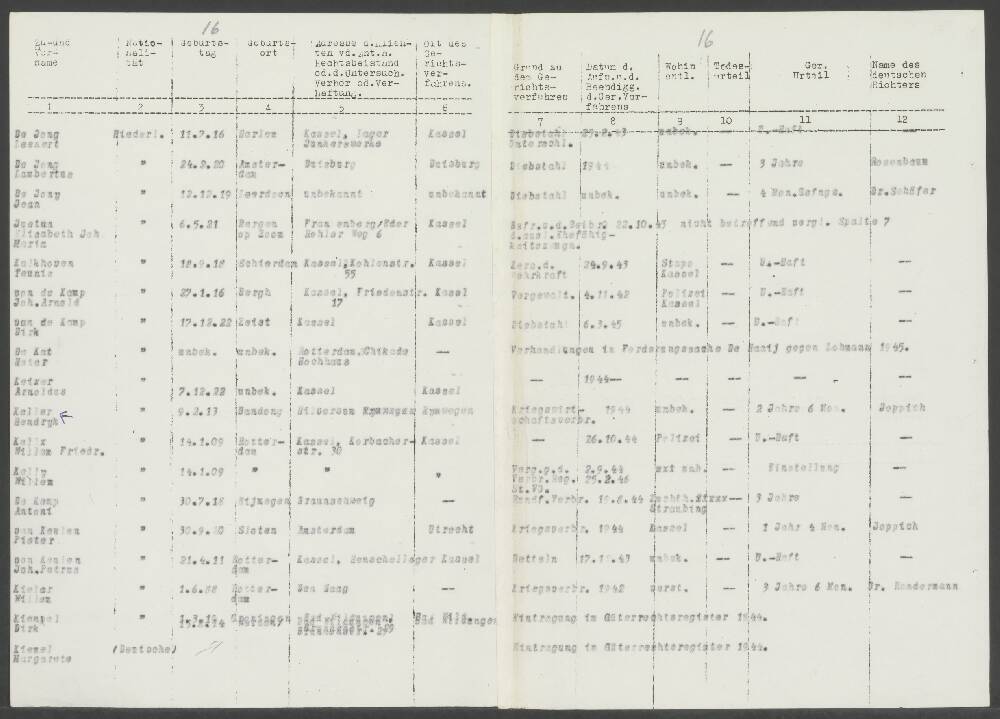 16
16
Zu-und Vor-name
Natio-nali-tät
Geburts-tag
Geburts-ort
Adresse d.Klien-ten vd.Ant.n. Rechtsbeistand od.d.Untersuch. Verhör od.Ver-haftung.
Ort des Ge-richts-ver-fahrens.
Grund zu dem Ge-richts-verfahren
Datum d. Aufn.u.d. Beendigg. d.Ger.Ver-fahrens
Wohin entl.
Todes-urteil
Ger. Urteil
Name des deutschen Richters
1 2 3 4 5 6 7 8 9 10 11 12
De Jong Niederl. 11.7.16 Kassel, Lager Junkerswerke Kassel Diebstahl 29.2.43 unbek. — U.-Haft —
De Jong Lambertus " 24.2.20 Amster-dam Duisburg Duisburg Diebstahl 1944 unbek. — 3 Jahre Rosenbaum
De Jong Jean " 12.12.19 Leerdam unbekannt unbekannt Diebstahl unbek. unbek. — 4 Mon.Gefngs. Dr.Schäfer
Elisabeth Joh. Maria " 6.5.21 Bergen op Zoom Frankenberg/Eder Kassel 22.10.43 nicht betreffend vergl. Spalte 7
Kalkhoven Teunis " 18.9.18 Schiedam Kassel, Kohlenstr. 55 Kassel Zers.d. Wehrkraft 24.9.43 Stapo Kassel — U.-Haft —
van de Kamp Joh.Arnold " 27.1.16 Bergh Kassel, Friedenstr. 17 Kassel Vergewalt. 4.11.42 Polizei Kassel — U.-Haft —
van de Kamp Dirk " 17.12.22 Zeist Kassel Kassel Diebstahl 6.3.45 unbek. — U.-Haft —
De Kat " unbek. unbek. Rotterdam, — Verhandlungen in Forderungssache De gegen Lohmann 1945.
Keizer Arnoldus " 7.12.22 unbek. Kassel Kassel — 1944 — — — — —
Keller Hendryk " 9.2.13 Bandong Hilversum Nymwegen Nymwegen Kriegswirt-schaftsverbr. 1944 unbek. — 2 Jahre 6 Mon. Joppich
Willem Friedr. " 14.1.09 Rotter-dam Kassel, Korbacher-str. 30 Kassel — 26.10.44 Polizei — U.-Haft —
Kelly Willem " 14.1.09 " " " 2.9.44 25.2.46 — Einstellung —
De Kemp Antoni " 30.7.18 Nijmegen Braunschweig — Rundf.Verbr. 19.6.44 Straubing — 3 Jahre —
van Keulen Pieter " 30.9.20 Sloten Amsterdam Utrecht Kriegsverbr. 1944 Kassel — 1 Jahr 4 Mon. Joppich
van Keulen Joh.Petrus " 21.4.11 Rotter-dam Kassel, Henschellager Kassel Betteln unbek. — U.-Haft —
Willem " 1.6.88 Rotter-dam Den Haag — Kriegsverbr. 1942 verst. — 3 Jahre 6 Mon. Dr. Handermann
Dirk " Bad Wildungen, Bad Wildungen Eintragung im Güterrechtsregister 1944.
Margarete (Deutsche) Eintragung im Güterrechtsregister 1944.